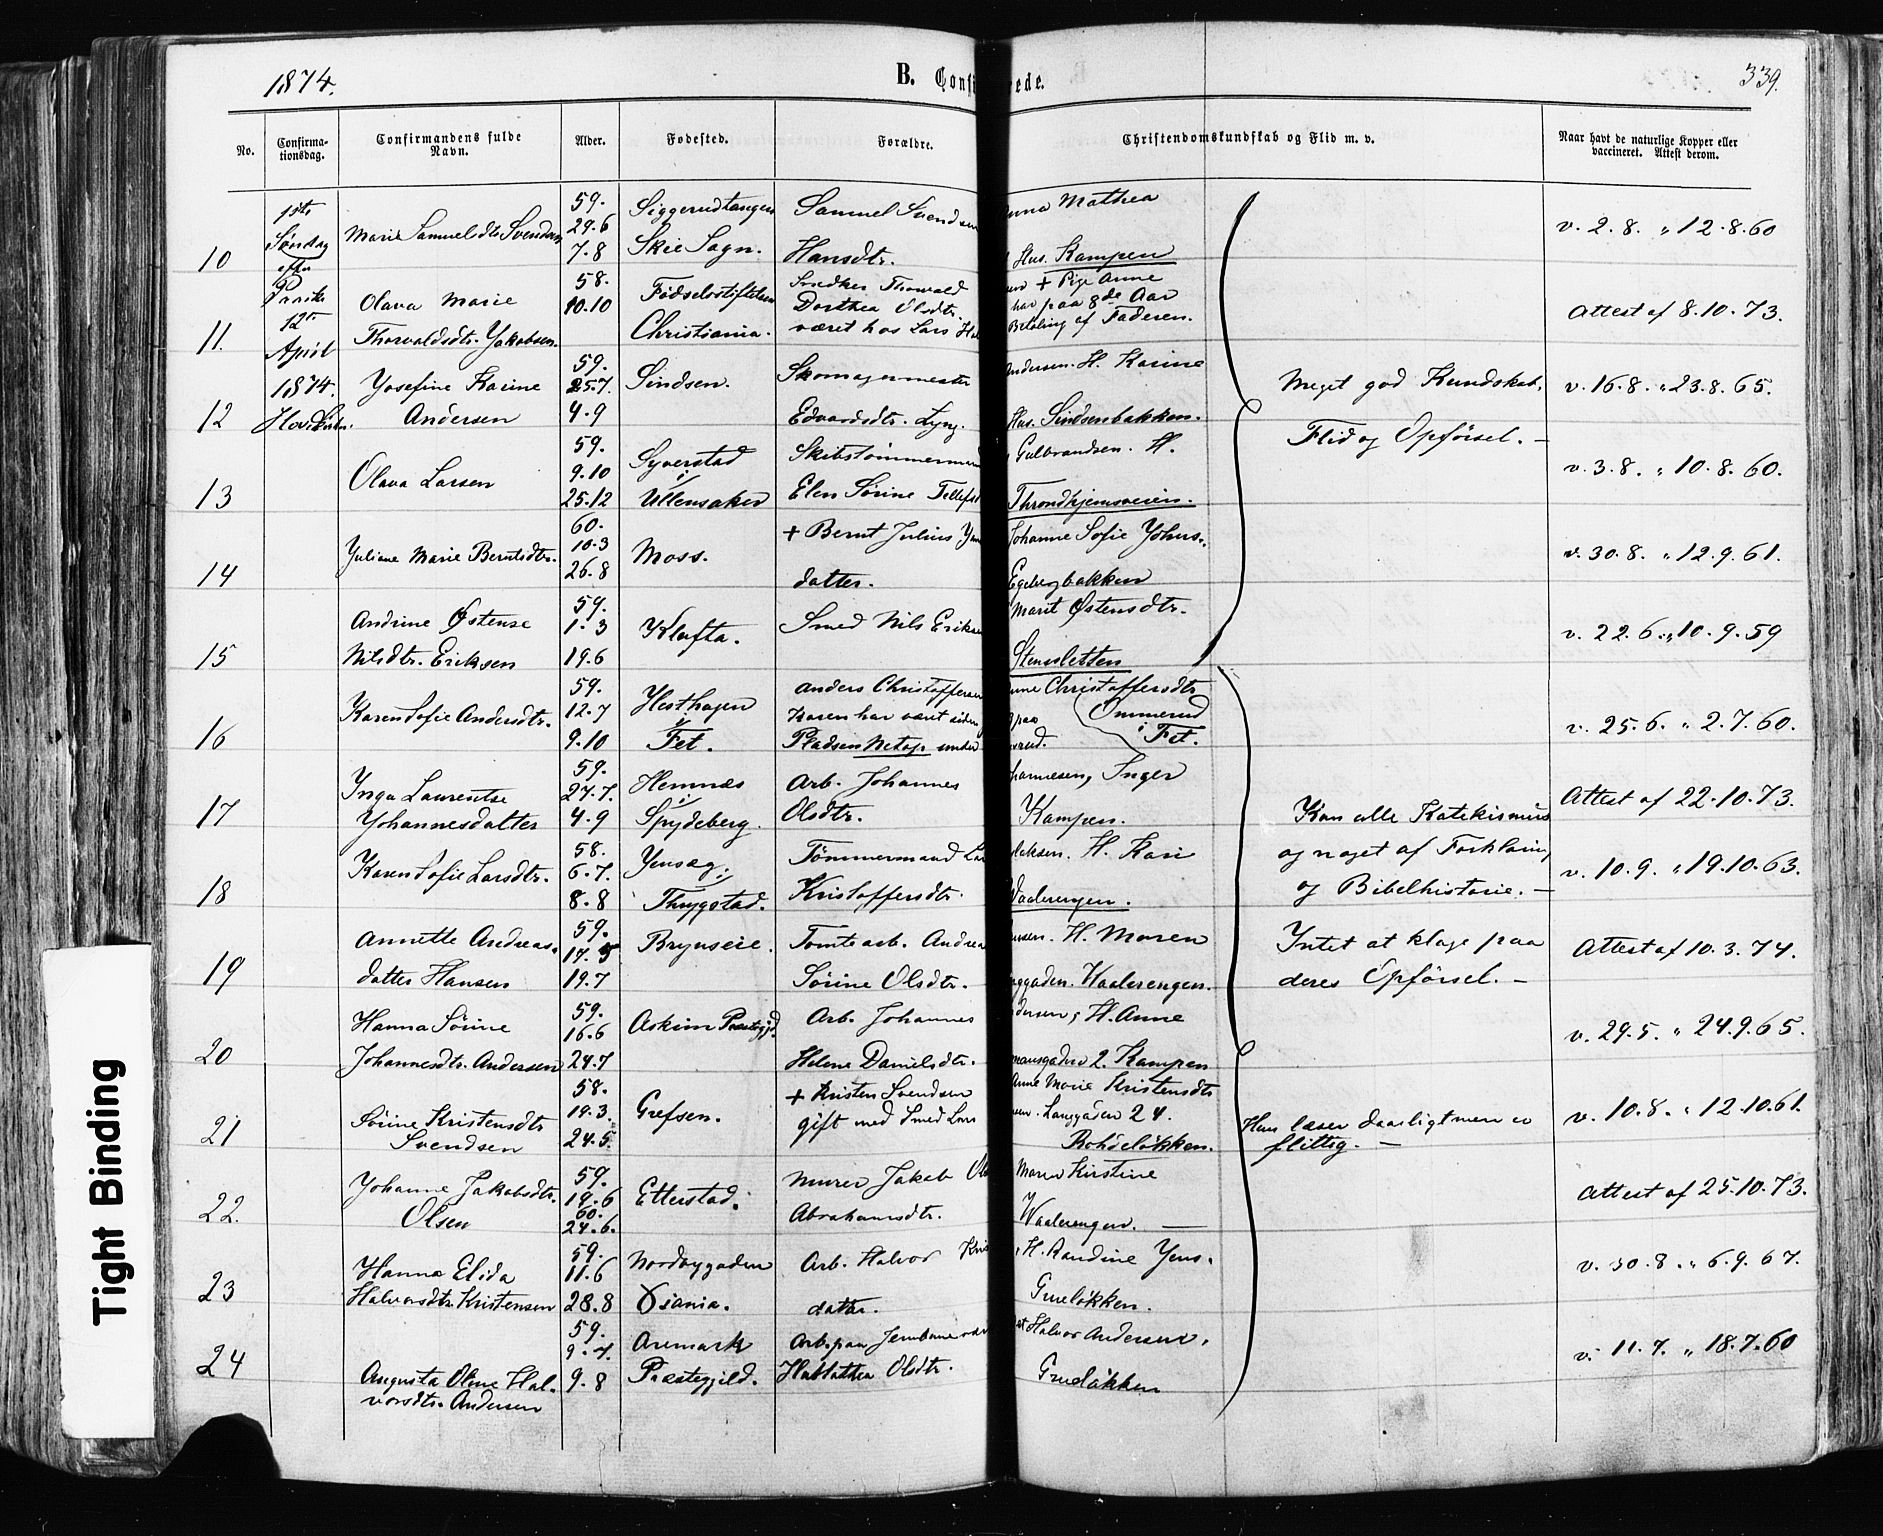 1874.
B. Confi
rede.
339.
No.
Confirma-
tionsdag.
Confirmandens fulde
Navn.
Alder.
Fødested.
Forældre.
Christendomskundskab og Flid m. v.
Naar havt de naturlige Kopper eller
vaccineret. Attest derom.
1ste
Søndag
efter
Paaske
12te
April
1874.
10
Marie Samuelsdtr Svendsen
59.
29.6
7.8
Siggerudtangen
Skie Sogn.
Samuel Svendsen
Hansdtr.
Anna Mathea
Hus. Kampen
v. 2.8. " 12.8.60
11.
Olava Marie
Thorvaldsdtr. Jakobsen.
58.
10.10
Fødselsstiftelsen
Christiania.
Snedker Thorvald
Dorthea Olsdtr.
været hos Lars
+ Pige Anne
har paa 8de Aar
Betaling af Faderen.
Attest af 8.10.73.
12
Josefine Karine
Andersen
59.
25.7.
4.9
Sindsen.
Skomagermester
Edvardsdtr. Lyng.
Andersen. H. Karine
Hus. Sindsenbakken.
Meget god Kundskab,
Flid og Opførsel. —
v. 16.8. " 23.8.65.
13
Olava Larsen
59.
9.10
25.12
Syverstad
i
Ullensaker
Skibstømmermand
Elen Sørine Tellefsd
Gulbrandsen. H.
Throndhjemsveien.
v. 3.8. " 10.8.60.
14
Juliane Marie Berntsdtr.
60.
10.3
26.8
Moss.
+ Bernt Julius
datter.
Johanne Sofie Johns.
Egebergbakken
v. 30.8. " 12.9.61.
15
Andrine Østense
Nilsdtr. Eriksen
59.
1.3
19.6
Kløfta.
Smed Nils Eriksen
Marit Østensdtr.
Stensletten
v. 22.6. " 10.9.59
16
Karen Sofie Andersdtr.
59.
12.7
9.10
Hesthagen
i
Fet.
Anders Christoffersen
Karen har været siden
Pladsen Netop under
Anne Christoffersdtr
paa
Ommerud
i Fet.
v. 25.6. " 2.7.60.
17
Inga Laurentse
Johannesdatter
59.
27.7.
4.9
Hemnæs
i
Spydeberg.
Arb. Johannes
Olsdtr.
Johannesen, Inger
Kampen.
Kan alle Katekismus
og noget af Forklaring
og Bibelhistorie. —
Attest af 22.10.73.
18
Karen Sofie Larsdtr.
58.
6.7.
8.8
Jensæg
i
Thrygstad.
Tømmermand Lar
Kristoffersdtr.
H. Kari
Vaalerengen.
v. 10.9. " 19.10.63.
19
Annette Andreas-
datter Hansen
59.
17.5
19.7
Brynseie.
Tomtearb. Andrea
Sørine Olsdtr.
Hansen. H. Maren
gaden. Vaalerengen.
Intet at klage paa
deres Opførsel. —
Attest af 10.3.74.
20
Hanna Sørine
Johannesdtr. Andersen
59.
16.6
24.7
Askim Præstegjd.
Arb. Johannes
Helene Danielsdtr.
Andersen, H. Anne
gaden 2. Kampen
v. 29.5. " 24.9.65.
21
Sørine Kristensdtr
Svendsen
58.
19.3.
24.5.
Grefsen.
+ Kristen Svendsen
gift med Smed Lars
Anne Marie Kristensdtr
Langgaden 24.
Rohdeløkken.
Hun læser daarligt men er
flittig. —
v. 10.8. " 12.10.61.
22.
Johanne Jakobsdtr.
Olsen
59.
19.6
60.
24.6.
Etterstad.
Murer Jakob Ols
Abrahamsdtr.
Maren Kirstine
Vaalerengen. —
Attest af 25.10.73.
23
Hanna Elida
Halvorsdtr. Kristensen
59.
11.6
28.8
Nordbygaden
Xsania.
Arb. Halvor Kris
datter.
H. Randine Jens-
Grueløkken.
v. 30.8. " 6.9.67.
24
Augusta Oline Hal-
vorsdtr. Andersen
59.
9.7.
9.8
Aremark
Præstegjeld.
Arb. paa Jernbane
Olsdtr.
Halvor Andersen,
Grueløkken
v. 11.7. " 18.7.60
Tight Binding